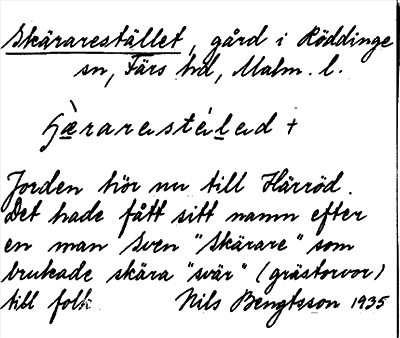 Skärarestället, gård i Röddinge
sn, Färs hd, Malm. l.
Jorden hör nu till Härröd.
Det hade fått sitt namn efter
en man Sven "Skärare" som
brukade skära "svär" (grästorvor)
till folk. Nils Bengtsson 1935